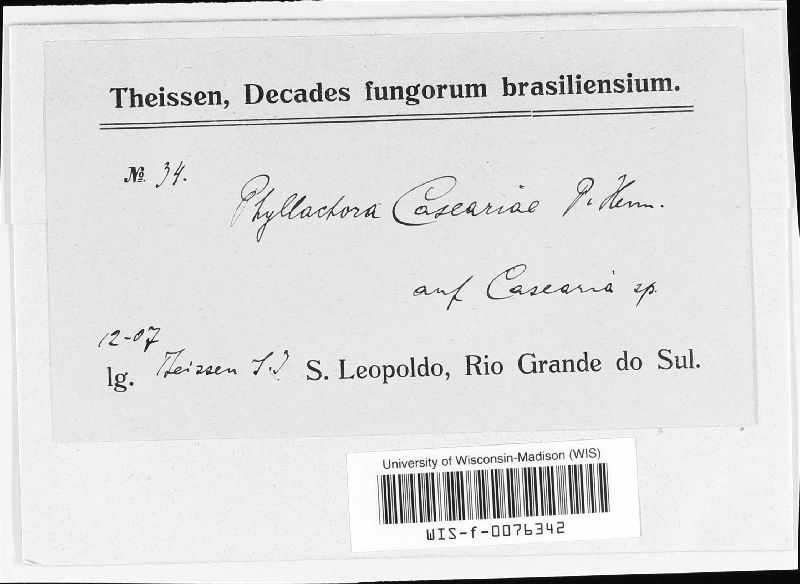 Theissen, Decades fungorum brasiliensium.
№ 34.
Phyllachora Caseariae P. Henn.
auf Casearia sp.
12-07
lg. Theissen S.J. S. Leopoldo, Rio Grande do Sul.
University of Wisconsin-Madison (WIS)
WIS-f-0076342